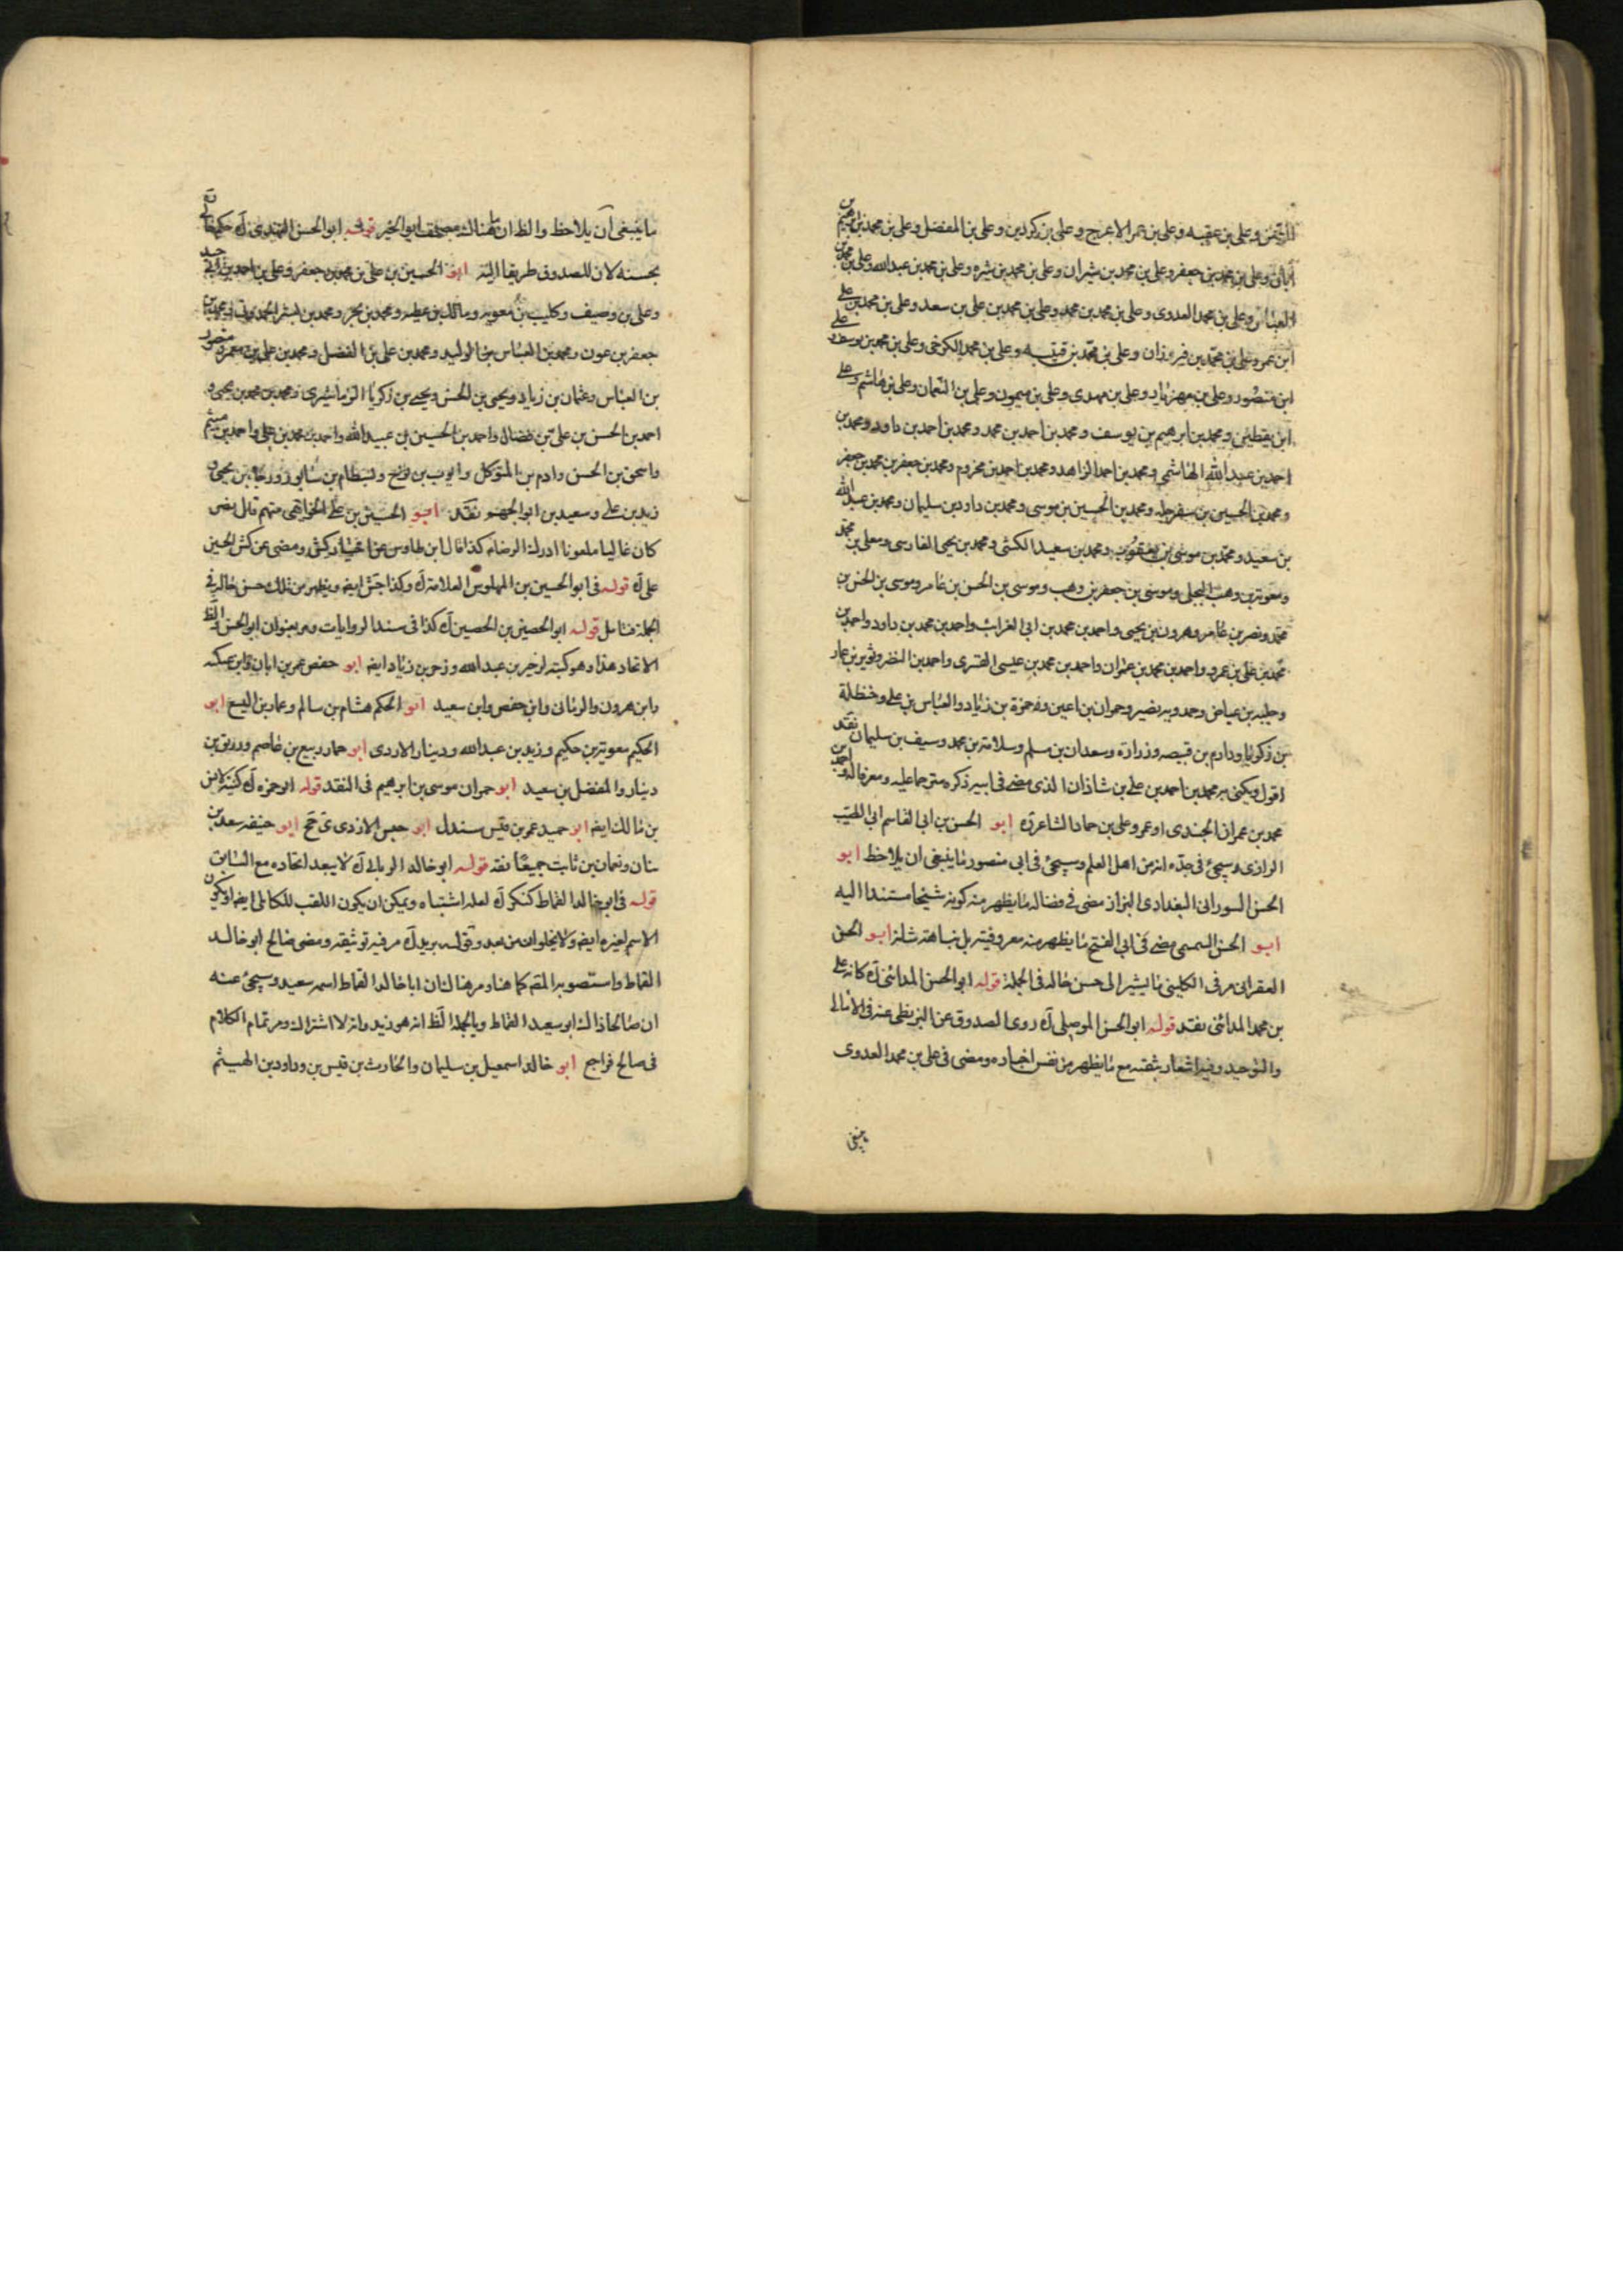 وعلي بن عقبه وعلي بن عمر الاعرج وعلي بن كردين وعلي بن المفضل وعلي بن محمد بن
ابان وعلي بن محمد بن جعفر وعلي بن محمد بن شيران وعلي بن محمد بن وعلي بن محمد بن عبدالله وعلي بن محمد بن
العباس وعلي بن محمد العدوى وعلي بن محمد بن محمد وعلي بن محمد بن علي بن سعد وعلي بن محمد بن علي
ابن عمرو وعلي بن محمد بن فيروزان وعلي بن محمد بن قتيبه وعلي بن محمد الكرخى وعلي بن محمد بن يوسف وعلي
ابن منصور وعلي بن مهزيار وعلي بن مهدى وعلي بن ميمون وعلي بن النعمان وعلي بن هاشم وعلي
ابن يقطين ومحمد بن ابرهيم بن يوسف ومحمد بن احمد بن محمد ومحمد بن احمد بن داود ومحمد بن
احمد بن عبد الله الهاشمي ومحمد بن احمد الزاهد ومحمد بن احمد بن مخزوم ومحمد بن جعفر بن محمد بن جعفر
ومحمد بن الحسين بن سفرجله ومحمد بن الحسين بن موسى ومحمد بن داود بن سليمان ومحمد بن عبد الله
بن سعيد ومحمد بن موسى بن يعقوب ومحمد بن سعيد الكشى ومحمد بن يحيى الفارسى ومعلى بن محمد
ومعوية بن وهب البجلى وموسى بن جعفر بن وهب وموسى بن الحسن بن عامر وموسى بن الحسن بن
محمد ونصر بن عامر وهرون بن يحيى واحمد بن محمد بن ابى الغراب واحمد بن محمد بن داود واحمد بن
محمد بن علي بن عمرو واحمد بن محمد بن عمران واحمد بن محمد بن عيسى القسرى واحمد بن النضر وثوير بن عمار
وجلبه بن عياض وحمدويه بن نصير وحمران بن اعين وحمزة بن زياد والعباس بن على وحنظلة
بن زكريا ودارم بن قبيصه وزرارة وسعدان بن مسلم وسلامة بن محمد وسيف بن سليمان نقد
اقول ويكنى به محمد بن احمد بن على بن شاذان الذى مضى فى ابيه ذكره مترحما عليه ومعرفا له واحمد بن
محمد بن عمران الجندى او عمر وعلى بن حماد الشاعر ره ابو الحسن بن ابى القاسم ابى الطيب
الرازى وسيجئ فى جده انه من اهل العلم وسيجئ فى ابى منصور ما ينبغى ان يلاحظ ابو
الحسن السورانى البغدادى البزاز مضى فى فضاله ما يظهر منه كونه شيخا مستندا اليه
ابو الحسن السمسمى مضى فى ابى الفتح ما يظهر منه معروفيته بل نباهته شانه ابو الحسن
العقرانى مر فى الكلينى ما يشير الى حسن حاله فى الجملة قوله ابو الحسن المدائنى آه كانه على
بن محمد المدائنى نقد قوله ابو الحسن الموصلى آه روى الصدوق عن البزنطى عنه فى الامالى
والتوحيد وفيه اشعار بثقته مع ما يظهر من نفس اخباره ومضى فى على بن محمد العدوى
ما ينبغى
ما ينبغى ان يلاحظ والظ ان هناك ابو الخير قوله ابو الحسن النهدى آه
بحسنه لان للصدوق طريقا اليه ابو الحسين بن على بن محمد بن جعفر وعلى بن احمد بن ابى جيد
وعلى بن وصيف وكليب بن معويه ومالك بن عطيه ومحمد بن بحر ومحمد بن بشر الحمدونى ومحمد بن
جعفر بن عون ومحمد بن العباس بن الوليد ومحمد بن على بن الفضل ومحمد بن على بن معمر ومنصور
بن العباس وعثمان بن زياد ويحيى بن الحسن ويحيى بن زكريا الزماشيرى ومحمد بن محمد بن يحيى و
احمد بن الحسن بن على بن فضال واحمد بن الحسين بن عبيد الله واحمد بن محمد بن على واحمد بن ميثم
واسحق بن الحسن وادم بن المتوكل وايوب بن نوح وبسطام بن سابور ورجا بن يحيى و
زيد بن على وسعيد بن ابو الجهم نقد ابو الحسين بن على الخواتيمى متهم قال نصر
كان غاليا ملعونا ادرك الرضا كذا قال ابن طاوس عن اختيار كش ومضى عن كش الحسين بن
على آه قوله فى ابو الحسين بن المهلوس العلامة آه وكذا جش ايضا ويظهر من ذلك حسن حاله فى
الجملة فتامل قوله ابو الحصين بن الحصين آه كذا فى سند الروايات ومر بعنوان ابو الحسن والظ
الاتحاد هذا وهو كنيه لزحر بن عبد الله وزحر بن زياد ايضا ابو حفص عمر بن ابان وابن عيكه
وابن هرون والرمانى وابن حفص وابن سعيد ابو الحكم هشام بن سالم وعمار بن اليسع ابو
الحكيم معوية بن حكيم وزيد بن عبد الله ودينار الازدى ابو حماد ربيع بن عاصم وزريق بن
دينار والمفضل بن سعيد ابو حمران موسى بن ابرهيم فى النقد قوله ابو حمزه آه كنية لانس
بن مالك ايضا ابو حميد عمر بن قيس سندل ابو حبس الازدى ق جخ ابو حنيفه سعد بن
سنان ونعمان بن ثابت جميعا نقد قوله ابو خالد الزبالى آه لا يبعد اتحاده مع السابق
قوله فى ابو خالد القماط كنكر آه لعله اشتباه ويمكن ان يكون اللقب للكابلى ايضا او يكون
الاسم لغيره ايضا ولا يخلوان من بعد وقوله بريد آه مر فيه توثيقه ومضى صالح ابو خالد
القماط واستصوبه المقم كما هنا ومر هناك ان ابا خالد القماط اسمه سعيد وسيجئ عنه
ان صالحا ذاك ابو سعيد القماط وبالجملة الظ انه هو زيد وانه لا اشتراك ومر تمام الكلام
فى صالح فراجع ابو خالد اسمعيل بن سليمان والحارث بن قيس بن وداود بن الهيثم